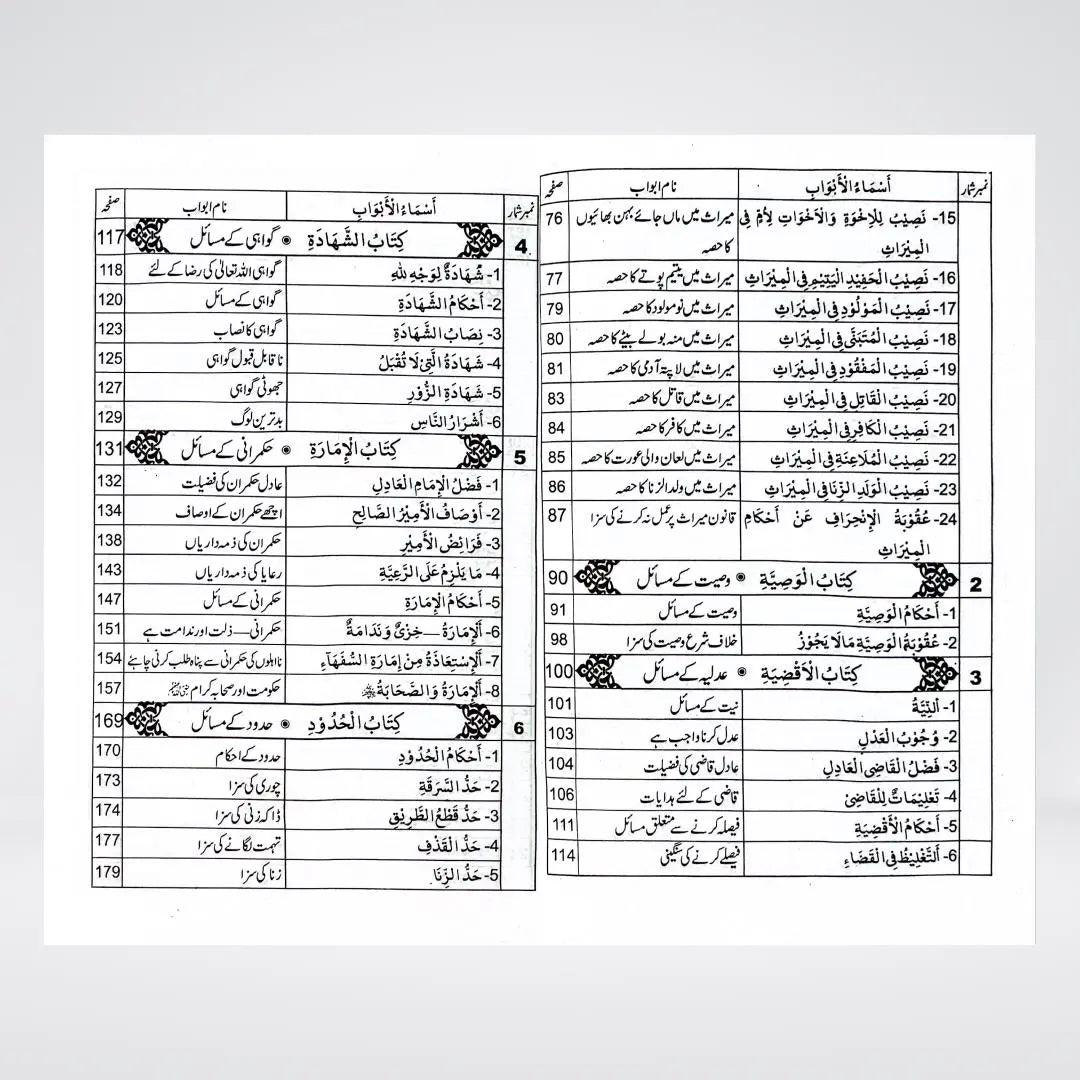 نمبر شمار أَسْمَاءُ الْأَبْوَابِ نام ابواب صفحہ
15- نَصِيْبُ لِلْاِخْوَةِ وَالْأَخَوَاتِ لِأُمٍّ فِي میراث میں ماں جائے بہن بھائیوں 76
الْمِيْرَاثِ کا حصہ
16- نَصِيْبُ الْحَفِيْدِ الْيَتِيْمِ فِي الْمِيْرَاثِ میراث میں یتیم پوتے کا حصہ 77
17- نَصِيْبُ الْمَوْلُوْدِ فِي الْمِيْرَاثِ میراث میں نومولود کا حصہ 79
18- نَصِيْبُ الْمُتَبَنّٰى فِي الْمِيْرَاثِ میراث میں منہ بولے بیٹے کا حصہ 80
19- نَصِيْبُ الْمَفْقُوْدِ فِي الْمِيْرَاثِ میراث میں لاپتہ آدمی کا حصہ 81
20- نَصِيْبُ الْقَاتِلِ فِي الْمِيْرَاثِ میراث میں قاتل کا حصہ 83
21- نَصِيْبُ الْكَافِرِ فِي الْمِيْرَاثِ میراث میں کافر کا حصہ 84
22- نَصِيْبُ الْمُلَاعِنَةِ فِي الْمِيْرَاثِ میراث میں لعان والی عورت کا حصہ 85
23- نَصِيْبُ الْوَلَدِ الزِّنَا فِي الْمِيْرَاثِ میراث میں ولد الزنا کا حصہ 86
24- عُقُوْبَةُ الْإِنْحِرَافِ عَنْ أَحْكَامِ قانون میراث پر عمل نہ کرنے کی سزا 87
الْمِيْرَاثِ
2 كِتَابُ الْوَصِيَّةِ ● وصیت کے مسائل 90
1- أَحْكَامُ الْوَصِيَّةِ وصیت کے مسائل 91
2- عُقُوْبَةُ الْوَصِيَّةِ مَا لَا يَجُوْزُ خلاف شرع وصیت کی سزا 98
3 كِتَابُ الْأَقْضِيَةِ ● عدلیہ کے مسائل 100
1- اَلنِّيَّةُ نیت کے مسائل 101
2- وُجُوْبُ الْعَدْلِ عدل کرنا واجب ہے 103
3- فَضْلُ الْقَاضِي الْعَادِلِ عادل قاضی کی فضیلت 104
4- تَعْلِيْمَاتٌ لِلْقَاضِيْ قاضی کے لئے ہدایات 106
5- أَحْكَامُ الْأَقْضِيَةِ فیصلہ کرنے سے متعلق مسائل 111
6- اَلتَّغْلِيْظُ فِي الْقَضَاءِ فیصلے کرنے کی سنگینی 114
نمبر شمار أَسْمَاءُ الْأَبْوَابِ نام ابواب صفحہ
4 كِتَابُ الشَّهَادَةِ ● گواہی کے مسائل 117
1- شَهَادَةٌ لِوَجْهِ لِلّٰهِ گواہی اللہ تعالیٰ کی رضا کے لئے 118
2- أَحْكَامُ الشَّهَادَةِ گواہی کے مسائل 120
3- نِصَابُ الشَّهَادَةِ گواہی کا نصاب 123
4- شَهَادَةُ الَّتِيْ لَا تُقْبَلُ ناقابل قبول گواہی 125
5- شَهَادَةِ الزُّوْرِ جھوٹی گواہی 127
6- أَشْرَارُ النَّاسِ بدترین لوگ 129
5 كِتَابُ الْإِمَارَةِ ● حکمرانی کے مسائل 131
1- فَضْلُ الْإِمَامِ الْعَادِلِ عادل حکمران کی فضیلت 132
2- أَوْصَافُ الْأَمِيْرُ الصَّالِحِ اچھے حکمران کے اوصاف 134
3- فَرَائِضُ الْأَمِيْرِ حکمران کی ذمہ داریاں 138
4- مَا يَلْزِمُ عَلَى الرَّعِيَّةِ رعایا کی ذمہ داریاں 143
5- أَحْكَامُ الْإِمَارَةِ حکمرانی کے مسائل 147
6- اَلْإِمَارَةُ — خِزْىٌ وَنَدَامَةٌ حکمرانی — ذلت اور ندامت ہے 151
7- اَلْإِسْتِعَاذَةُ مِنْ إِمَارَةِ السُّفَهَاءِ نااہلوں کی حکمرانی سے پناہ طلب کرنی چاہئے 154
8- اَلْإِمَارَةُ وَالصَّحَابَةُ ﷡ حکومت اور صحابہ کرام ﷡ 157
6 كِتَابُ الْحُدُوْدِ ● حدود کے مسائل 169
1- أَحْكَامُ الْحُدُوْدِ حدود کے احکام 170
2- حَدُّ السَّرَقَةِ چوری کی سزا 173
3- حَدُّ قَطْعُ الطَّرِيْقِ ڈاکہ زنی کی سزا 174
4- حَدُّ الْقَذْفِ تہمت لگانے کی سزا 177
5- حَدُّ الزِّنَا زنا کی سزا 179